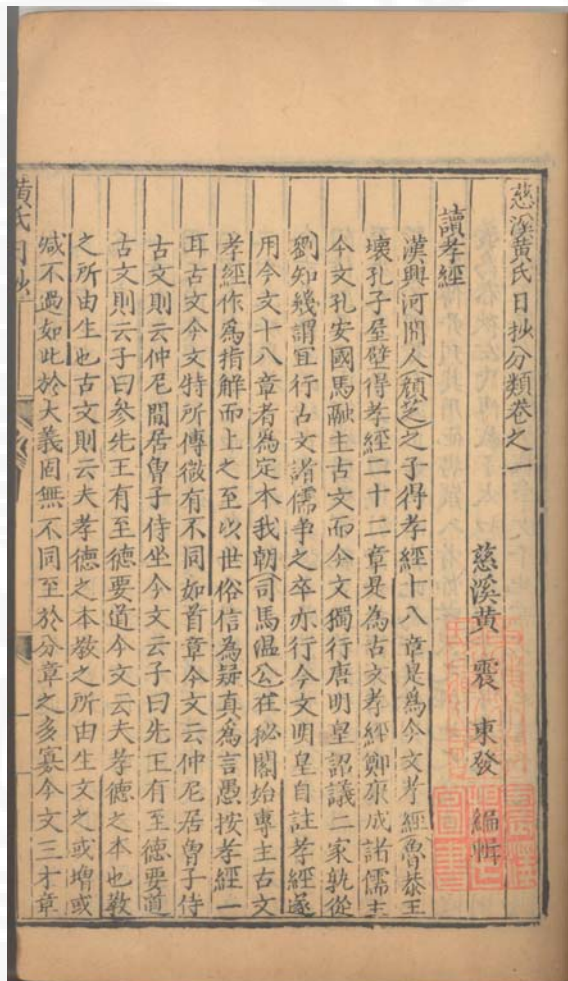 慈溪黃氏日抄分類卷之一
慈溪黃 震 東發 編輯
讀孝經
漢興河間人顏芝之子得孝經十八章是爲今文孝經魯恭王
壞孔子屋壁得孝經二十二章是為古文孝經鄭康成諸儒主
今文孔安國馬融主古文而今文獨行唐明皇詔議二家孰從
劉知幾謂宜行古文諸儒爭之卒亦行今文明皇自註孝經遂
用今文十八章者為定本我朝司馬溫公在秘閣始專主古文
孝經作爲指解而上之至以世俗信偽疑真爲言愚按孝經一
耳古文今文特所傳微有不同如首章今文云仲尼居曾子侍
古文則云仲尼閒居曾子侍坐今文云子曰先王有至德要道
古文則云子曰參先王有至德要道今文云夫孝德之本也教
之所由生也古文則云夫孝德之本教之所由生文之或增或
减不過如此於大義固無不同至於分章之多寡今文三才章
黃氏日抄